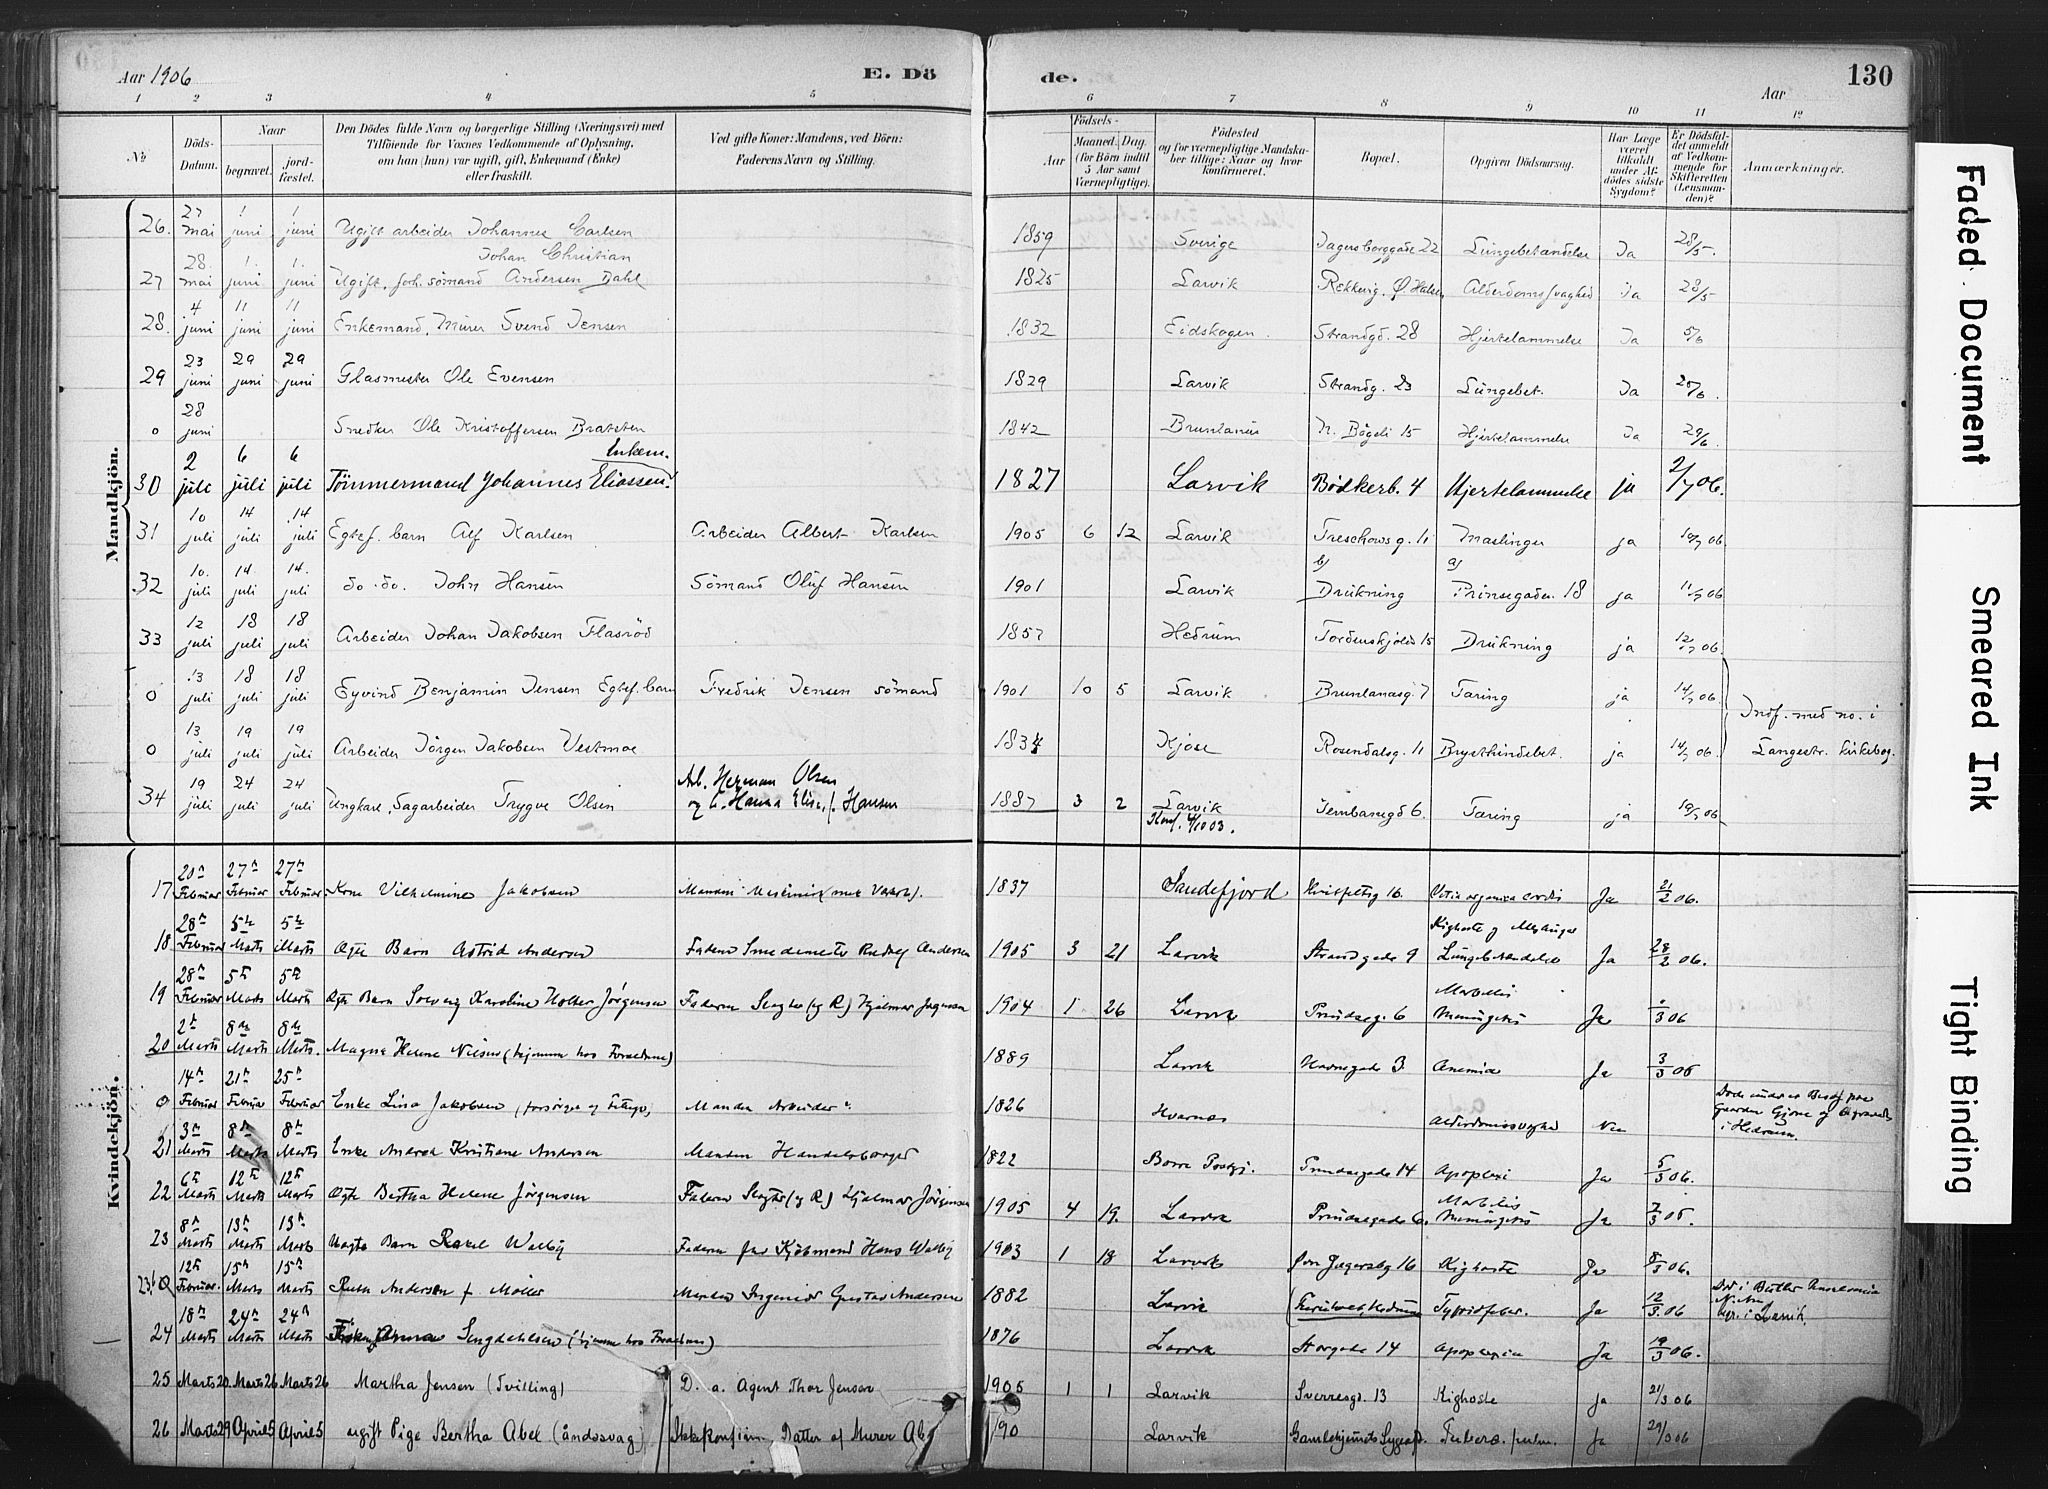 Aar 1906
E. Dö
de.
Aar
130
1 2 3 4 5 6 7 8 9 10 11 12
No
Döds-Datum.
Naar
begravet.
jord-fæstet.
Den Dödes fulde Navn og borgerlige Stilling (Næringsvei) med
Tilföiende for Voxnes Vedkommende af Oplysning,
om han (hun) var ugift, gift, Enkemand (Enke)
eller fraskilt.
Ved gifte Koner: Mandens, ved Börn:
Faderens Navn og Stilling.
Födsels-
Aar
Maaned. Dag.
(for Börn indtil
5 Aar samt
Værnepligtige).
Födested
og for værnepligtige Mandska-
ber tillige: Naar og hvor
konfirmeret.
Bopæl.
Opgiven Dödsaarsag.
Har Læge
været
tilkaldt
under Af-
dödes sidste
Sygdom?
Er Dödsfal-
det anmeldt
af Vedkom-
mende for
Skifteretten
(Lensman-
den)?
Anmærkninger.
Mandkjön.
26. 27 mai 1 juni 1 juni Ugift arbeider Johannes Carlsen 1859 Sverige Jagersborggade 22 Lungebetændelse Ja 28/5.
27 28. mai 1. juni 1. juni Ugift, forh. sömand Johan Christian Andersen Dahl 1825 Larvik Rekkevig. Ø. Halsen Alderdomssvaghed Ja 28/5
28. 4 juni 11 juni 11 juni Enkemand, Murer Svend Jensen 1832 Eidskogen Strandgd. 28 Hjertelammelse Ja 5/6
29 23 juni 29 juni 29 juni Glasmester Ole Evensen 1829 Larvik Strandg. 23 Lungebet. Ja
0 28 juni Snedker Ole Kristoffersen Bratsten 1842 Brunlanæs N. Bögeli 15 Hjertelammelse Ja 29/6
30 2 juli 6 juli 6 juli Tömmermand Johannes Eliassen Enkem. 1827 Larvik Bödkerb. 4 Hjertelammelse ja 2/7 06.
31 10 juli 14 juli 14 juli Egtef. barn Alf Karlsen Arbeider Albert Karlsen 1905 6 12 Larvik Treschowsg. 11 Mæslinger ja 10/7 06
32 10. juli 14. juli 14. juli do. do. John Hansen Sömand Oluf Hansen 1901 Larvik b) Drukning a) Prinsegaden 18 ja 11/7 06
33 12 juli 18 juli 18 juli Arbeider Johan Jakobsen Flasröd 1857 Hedrum Tordenskjolds 15 Drukning ja 12/7 06.
0 13 juli 18 juli 18 juli Eyvind Benjamin Jensen Egtef. barn Fredrik Jensen sömand 1901 10 5 Larvik Brunlanæsg. 7 Tæring ja 14/7 06 Indf. med no. i
0 13 juli 19 juli 19 juli Arbeider Jörgen Jakobsen Vestmoe 1834 Kjose Rosendalsg. 11 Brysthindebet. ja 14/7 06 Langestr. kirkebog.
34 19 juli 24 juli 24 juli Ungkarl, Sagarbeider Trygve Olsen Arb. Herman Olsen
og h. Hanna Elise, f. Hansen 1887 3 2 Larvik Konf. 4/10 03. Jernbanegd 6. Tæring ja 19/7 06
Kvindekjön.
17 20n Februar 27n Februar 27n Februar Kone Vilhelmine Jakobsen 1837 Sandefjord Hvitfeltsg 16. Vitia organica cordis Ja 21/2 06.
18 28n Februar 5te Marts 5te Marts Ægte Barn Astrid Andersen Faderen Smedemester Andersen 1905 3 21 Larvik Strandgade 9 Kighoste og Lungebetændelse Ja 28/2 06.
19 28n Februar 5te Marts 5te Marts Ægte Barn Solveig Karoline Holter Jörgensen Faderen Slagter (og R) Hjalmar Jörgensen 1904 1 26 Larvik Prindseg. 6 Morbilli Meningitis Ja /3 06
20 2n Marts 8de Marts 8de Marts. Magna Helene Nilsen (hjemme hos Forældrene) 1889 Larvik Havnegade 3 Anemia Ja 3/3 06
0 14n Februar 21n Februar 25n Februar Enke Lina Jakobsen Manden Arbeider 1826 Hvarnæs Alderdomssvaghed Nei Gaarden Gjone og begravet i Hedrum.
21 3n Marts 8n Marts 8n Marts Enke Andrea Kristiane Andersen Manden Handelsborger 1822 Borre Prindsegade 14 Apoplexi Ja 5/3 06.
22 6te Marts 12te Marts 12te Marts Ægte Bertha Helene Jörgensen Faderen Slagter (og R) Hjalmar Jörgensen 1905 4 19. Larvik Prindsegade 6. Morbilli Meningitis Ja 7/3 06.
23 8n Marts 13n Marts 13n Marts Uægte Barn Rakel Walby Faderen Kjöbmand Hans Walby 1903 1 18 Larvik Jagersbg 16 Kighoste Ja 8/3 06.
23b 12te Februar. 15n Marts 15n Marts Ruth Andersen f Möller Manden Ingeniör Gustav Andersen 1882 Larvik Tyfoidfeber. Ja 12/3 06 Död i Butler begr. i Larvik.
24 18n Marts 24n Marts 24n Marts Anna (hjemme hos Forældrene) 1876 Larvik Storgade 14 Apoplexia Ja 19/3 06.
25 Marts 20 Marts 26 Marts 26 Martha Jensen (Tvilling) D. a. Agent Thor Jensen 1905 1 1 Larvik Sverresgd. 13 Kighoste Ja 21/3 06
26 Marts 29 April 5 April 5 ugift Pige Bertha Abel (åndssvag) Ikke konfirm. Datter af Murer Abel 90 Larvik Gamlehjemmets Sygeafd. Tuberc. pulm. Ja 29/3 06
Faded Document
Smeared Ink
Tight Binding